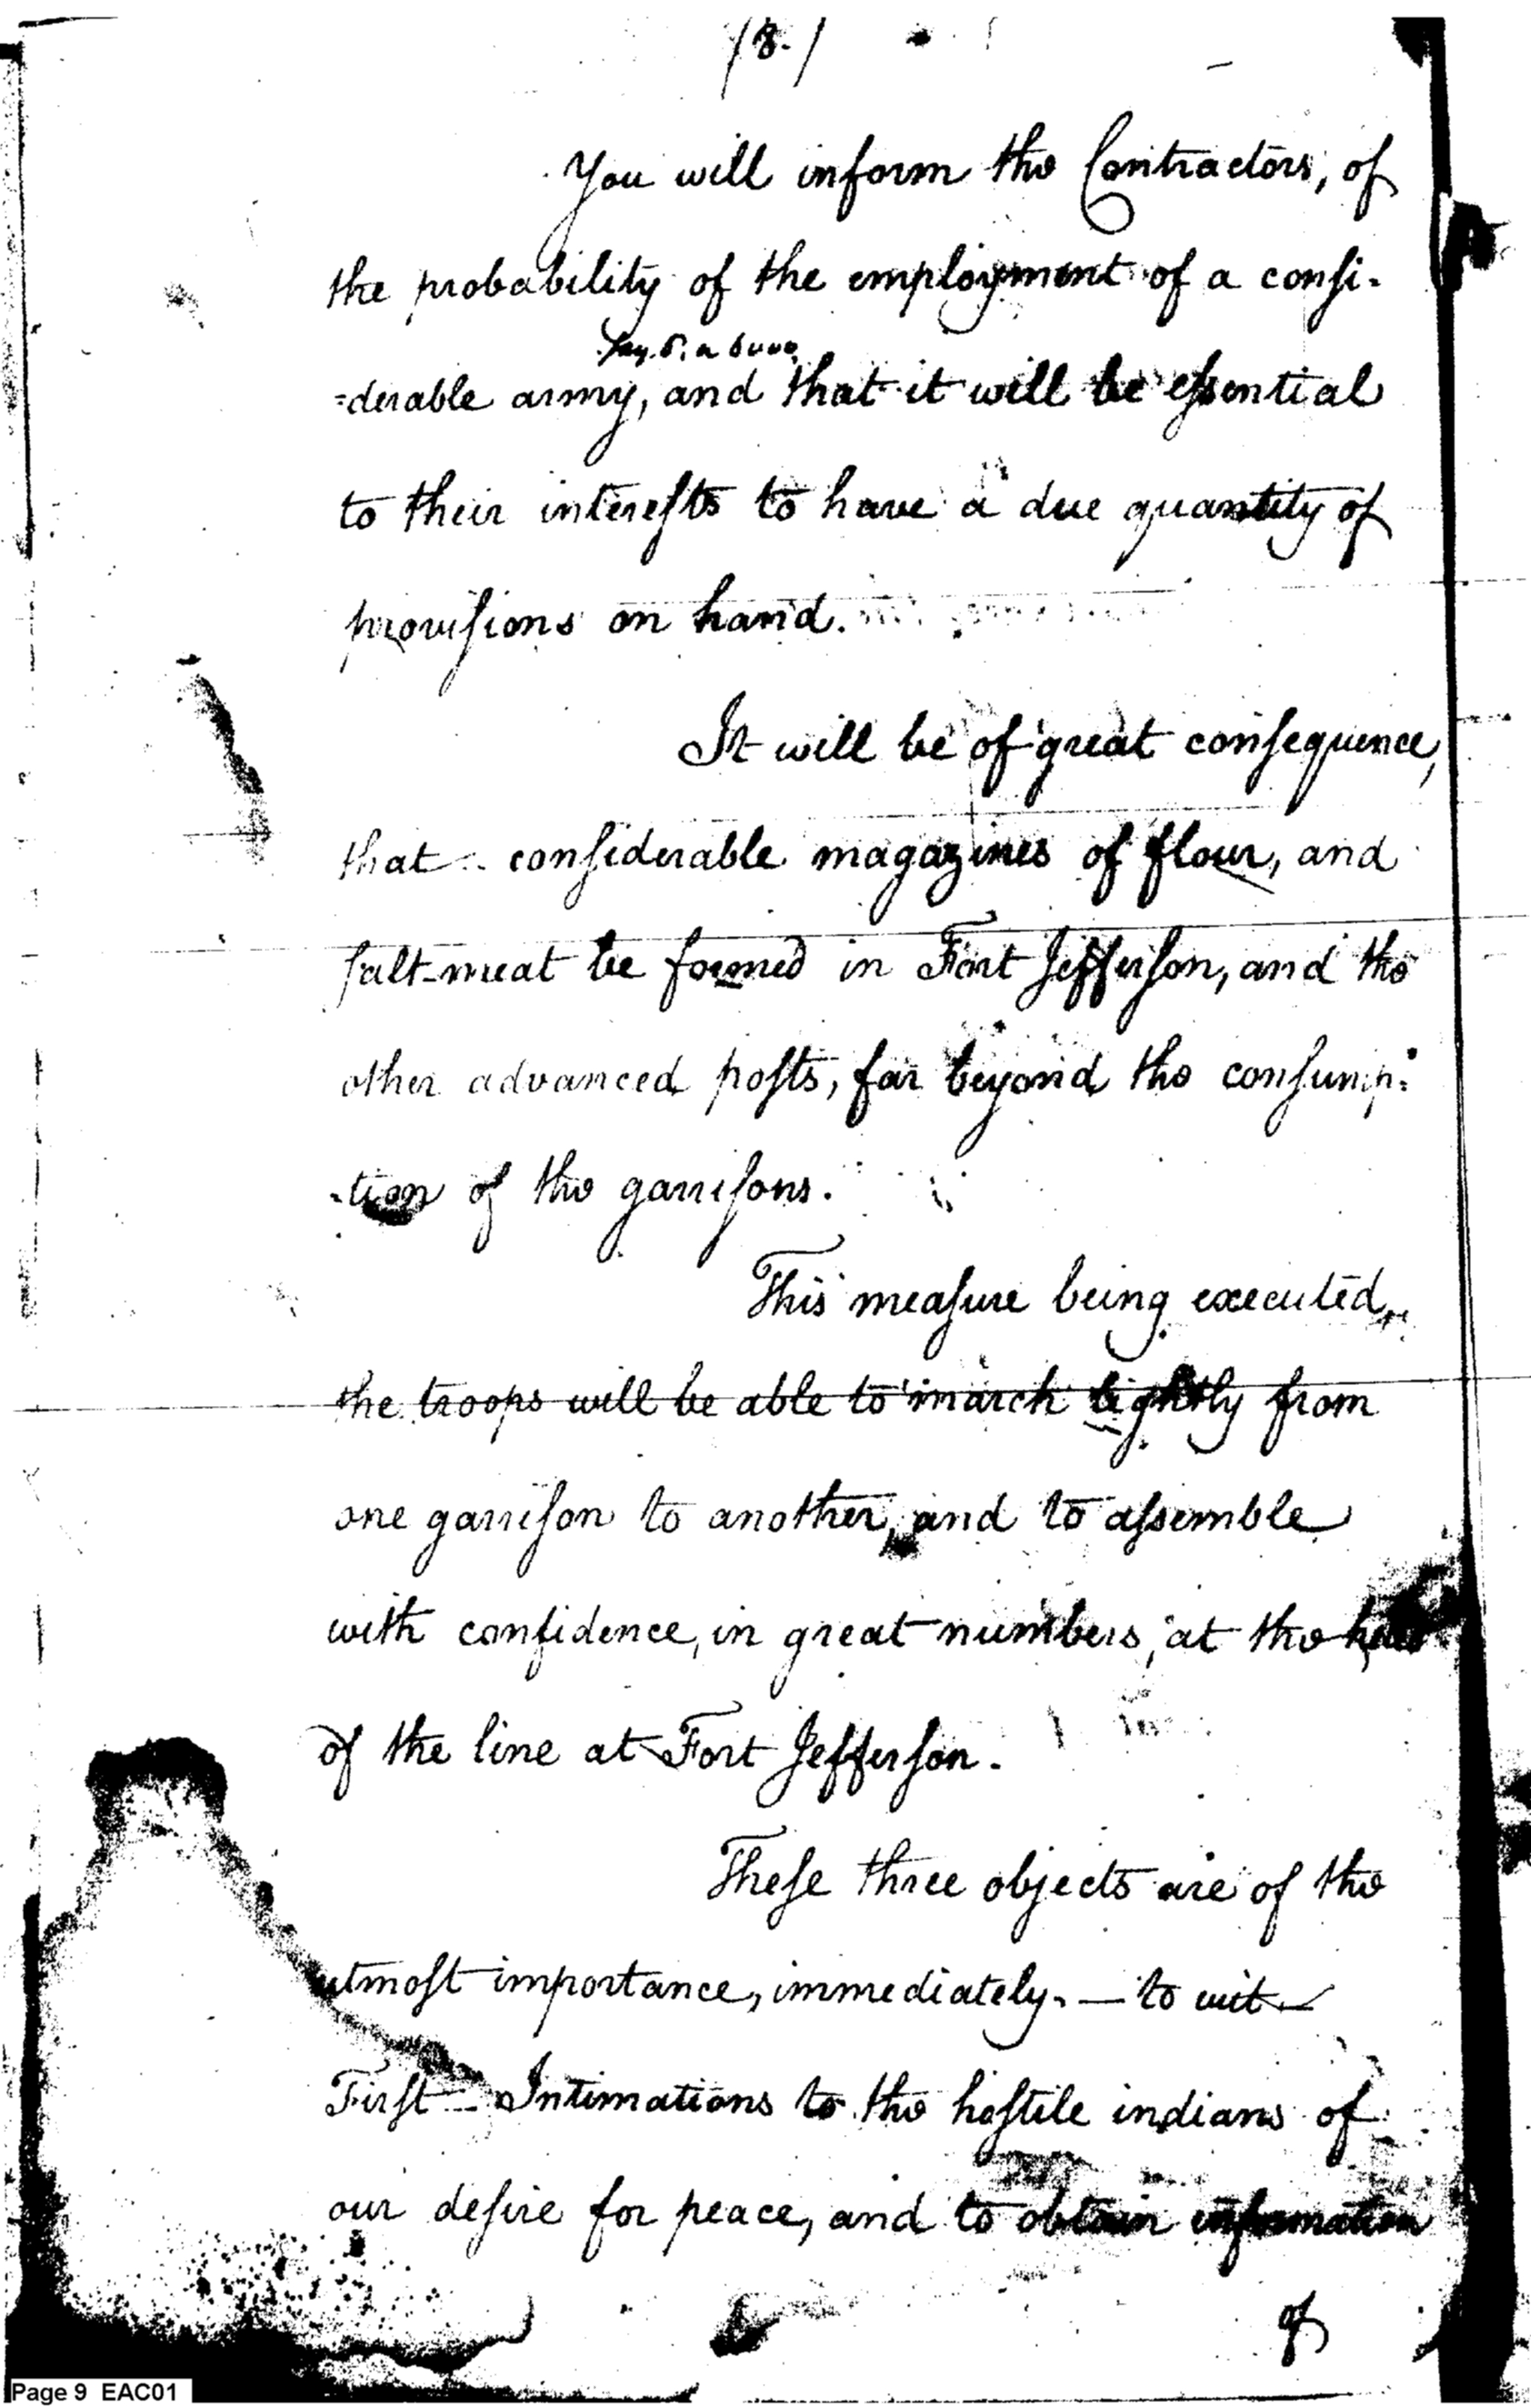 /8./
You will inform the Contractors, of
the probability of the employment of a consi-
say 5. a 6000
=derable army, and that it will be essential
to their interests to have a due quantity of
provisions on hand.
It will be of great consequence,
that considerable magazines of flour, and
salt-meat be formed in Fort Jefferson, and the
other advanced posts, far beyond the consump-
-tion of the garrisons.
This measure being executed,
the troops will be able to march lightly from
one garrison to another, and to assemble
with confidence, in great numbers, at the head
of the line at Fort Jefferson.
These three objects are of the
utmost importance, immediately. — to wit —
First — Intimations to the hostile indians of
our desire for peace, and to obtain information
of
Page 9 EAC01